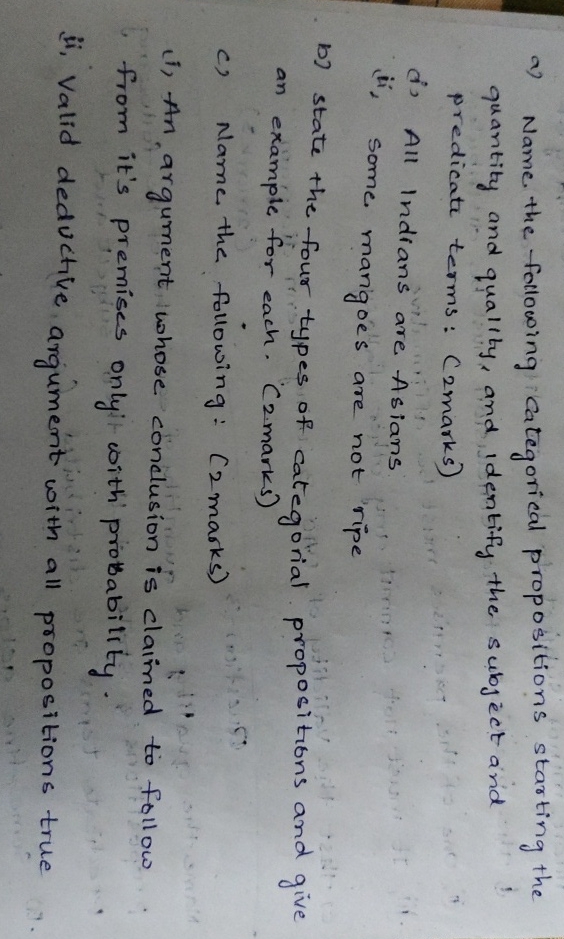 a) Name the following categorical propositions starting the
quantity and quality, and identify the subject and
predicate terms: (2marks)
i, All Indians are Asians
ii, some mangoes are not ripe
b) state the four types of categorial propositions and give
an example for each. (2marks)
c) Name the following: (2marks)
i, An argument whose conclusion is claimed to follow
from it's premises only with probability.
ii, Valid deductive argument with all propositions true